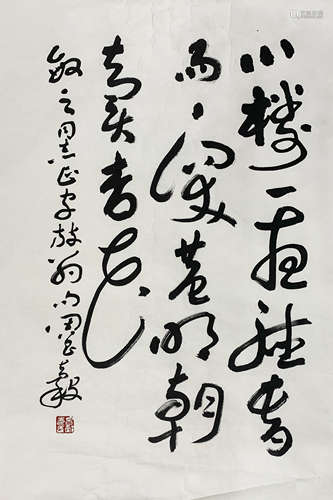 小樓一夜聽春
雨深巷明朝
賣杏花
敏之同志正字放翁句周